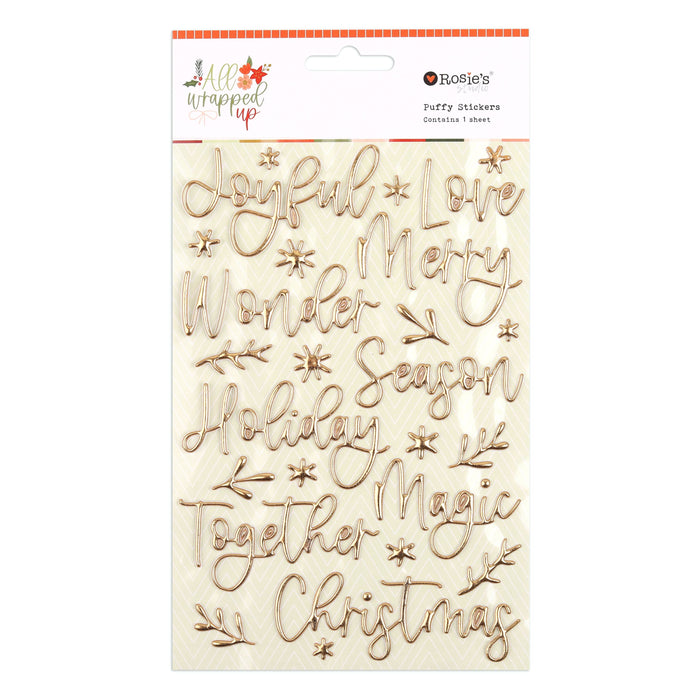 All
wrapped
up
Rosie's®
Studio
Puffy Stickers
Contains 1 sheet
Joyful Love
Merry
Wonder
Season
Holiday
Magic
Together
Christmas